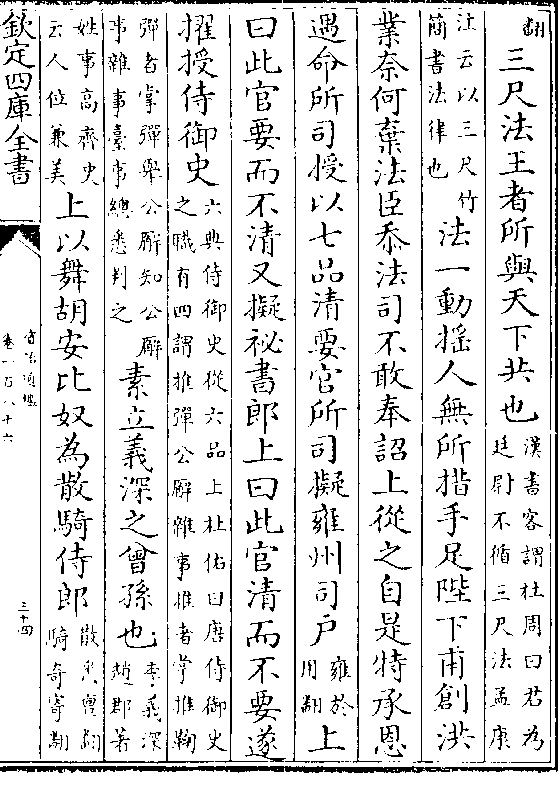 翻三尺法王者所與天下共也漢書客謂杜周曰君為廷尉不循三尺法孟康
注云以三尺竹簡書法律也法一動揺人無所措手足陛下甫創洪
業奈何棄法臣忝法司不敢奉詔上從之自是特承恩
遇命所司授以七品清要官所司擬雍州司户雍於用翻上
曰此官要而不清又擬祕書郎上曰此官清而不要遂
擢授侍御史六典侍御史從六品上杜佑曰唐侍御史之職有四謂推彈公廨雜事推者掌推鞫
彈者掌彈舉公廨知公廨事雜事臺事總悉判之素立義深之曾孫也李義深趙郡著
姓事髙齊史云人位兼美上以舞胡安比奴為散騎侍郎散悉亶翻騎奇寄翻
欽定四庫全書
資治通鑑
卷一百八十六
三十四